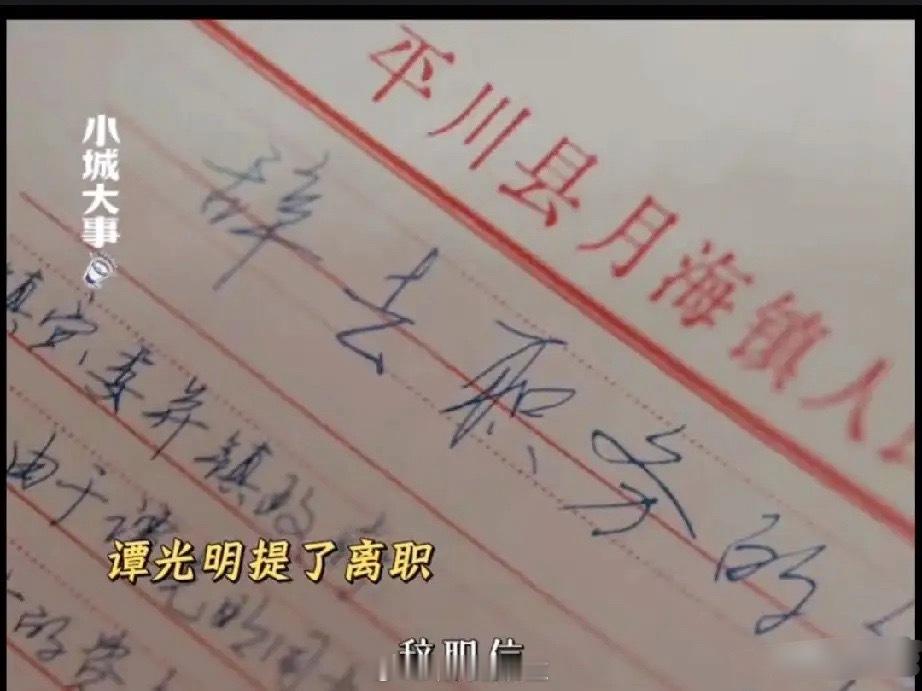 平川县月海镇人
小城大事
辞去职务的
镇党委并镇政府
由于谭光明同
的费
谭光明提了离职
辞职信